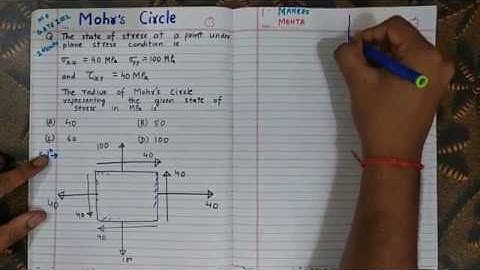 Mohr's Circle
Q The state of stress at a point under
plane stress condition is
σxx = 40 MPa σyy = 100 MPa
and τxy = 40 MPa
The radius of Mohr's circle
representing the given state of
stress in MPa is
(A) 40 (B) 50
(C) 60 (D) 100
100
40
40
40
40
40
40
100
MEHTA